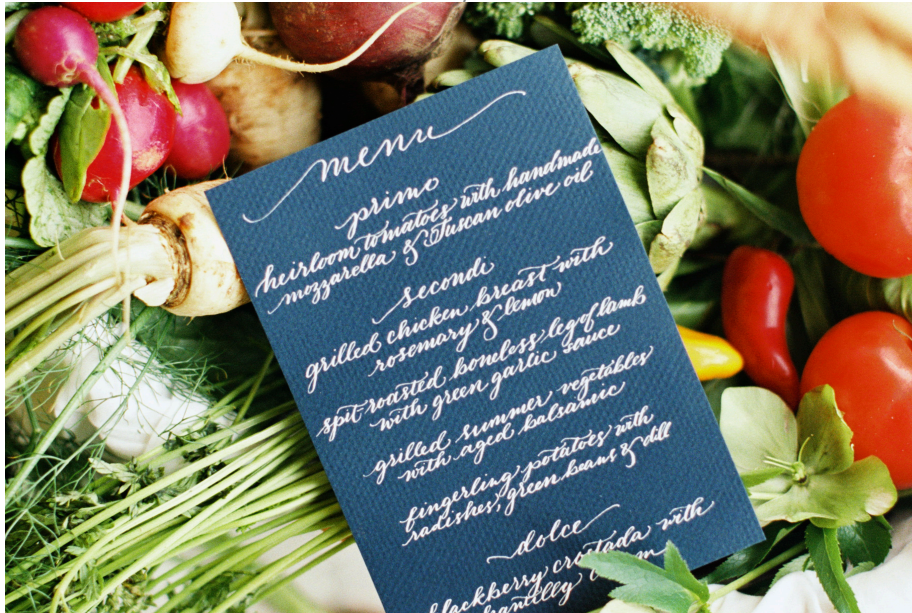 menu
primo
heirloom tomatoes with handmade
mozzarella & Tuscan olive oil
secondi
grilled chicken breast with
rosemary & lemon
spit-roasted boneless leg of lamb
with green garlic sauce
grilled summer vegetables
with aged balsamic
fingerling potatoes with
radishes, green beans & dill
dolce
blackberry crostada with
chantilly cream